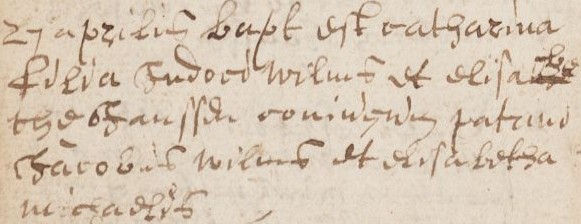 27 aprilis bapt est catharina
filia Judoci wilms et elisabe
the Janssen coniugum patrini
Jacobus wilms et elisabetha
michaelis